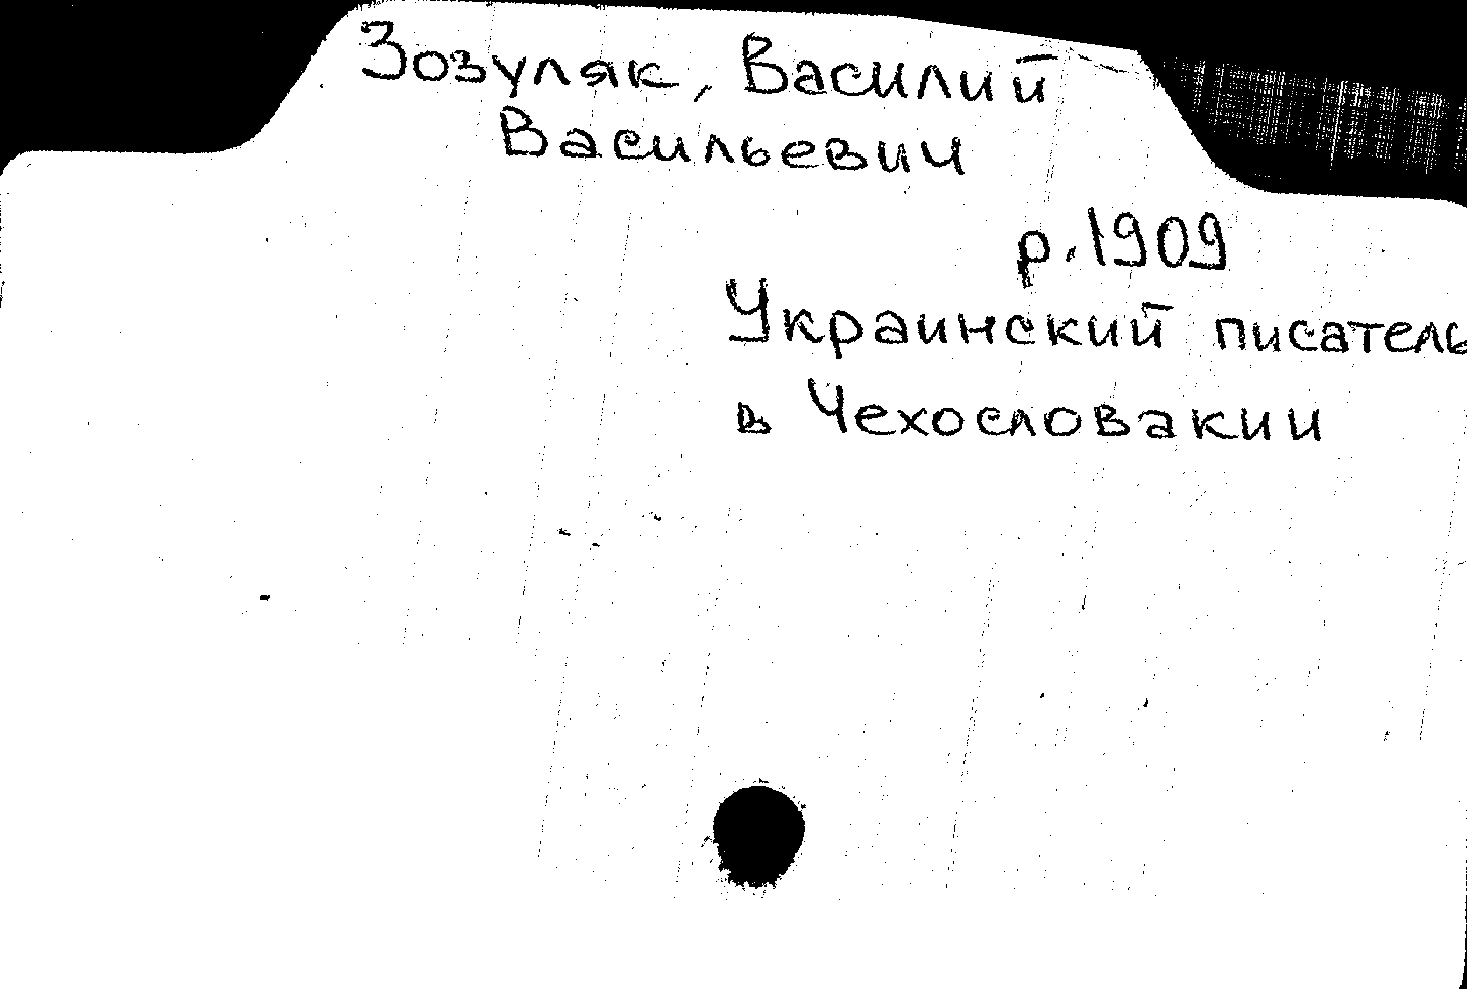 Зозуляк, Василий
Васильевич
р. 1909
Украинский писатель
в Чехословакии